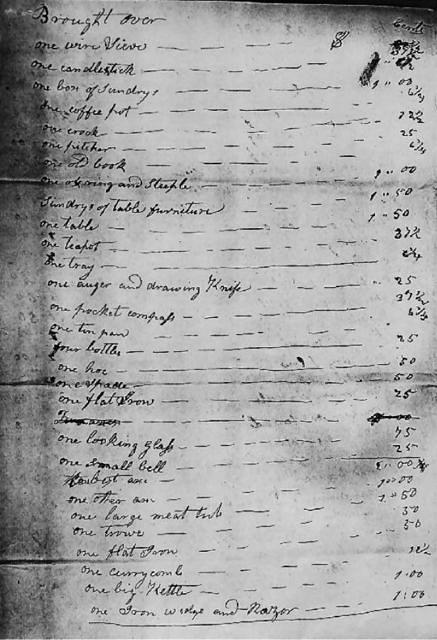 Brought over $ Cents
one wire Sieve
one candlestick
one box of Sundrys 1 " 00
one coffee pot 6¼
one crock
one pitcher 25
one old book 6¼
one ox ring and Steeple 1 " 00
Sundrys of table furniture 1 " 50
one table 1 " 50
one teapot 37½
one tray 6¼
one auger and drawing Knife 25
one pocket compass 37½
one tin pan 6¼
four bottles 25
one hoe 50
one Spade 50
one flat Iron 25
one looking glass 75
one Small bell 25
axe
one other axe 1 " 50
one large meat tub 50
one 50
one flat Iron 12½
one currycomb
one big Kettle 1 " 00
one Iron wedge and Razor 1 " 00